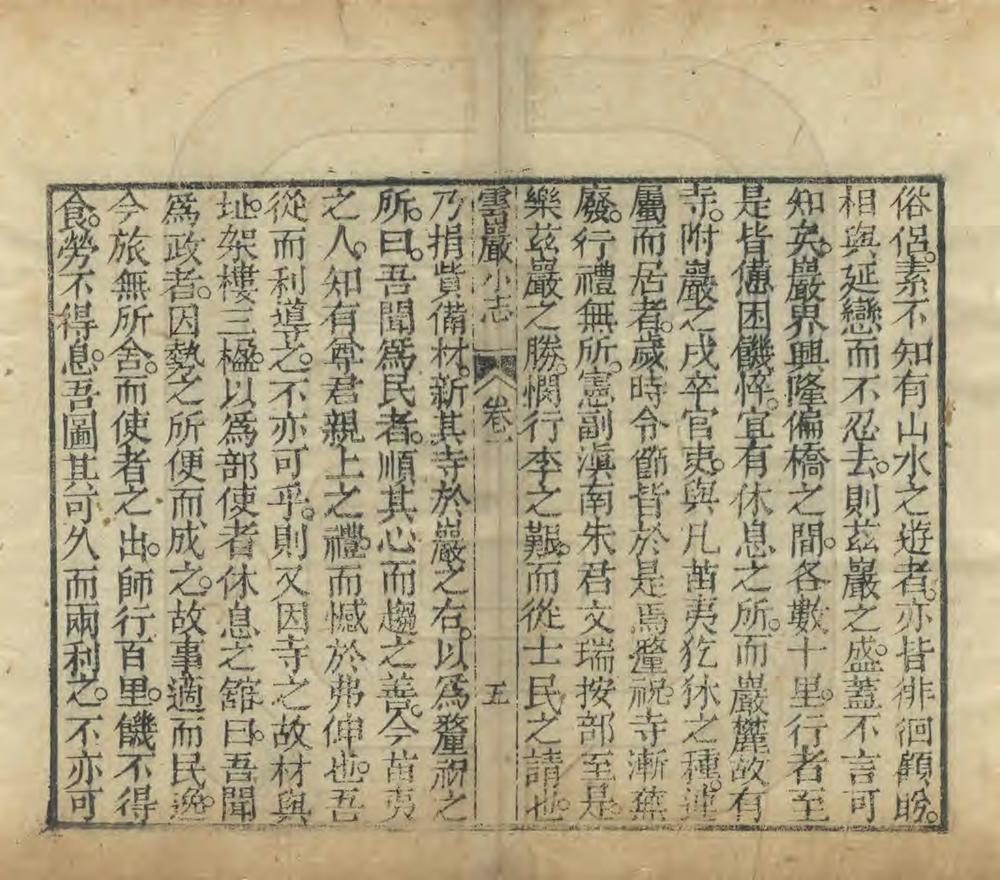 俗侣。素不知有山水之遊者。亦皆徘徊顧盼。
相與延戀而不忍去。則茲巖之盛。蓋不言可
知矣。巖界興隆偏橋之間。各數十里。行者至
是皆憊困饑悴。宜有休息之所。而巖麓故有
寺。附巖之戍卒官吏。與凡苗夷犵狇之種。連
屬而居者。歲時令節皆於是焉釐祝。寺漸蕪
廢。行禮無所。憲副滇南朱君文瑞按部至是。
樂茲巖之勝。憫行李之艱。而從士民之請也。
雲巖小志 卷一 五
乃捐貲備材。新其寺於巖之右。以爲釐祝之
所。曰。吾聞爲民者。順其心而趨之善。今苗夷
之人。知有尊君親上之禮。而憾於弗伸也。吾
從而利導之。不亦可乎。則又因寺之故材與
址。架樓三楹。以爲部使者休息之舘。曰。吾聞
爲政者。因勢之所便而成之。故事適而民逸。
今旅無所舍。而使者之出。師行百里。饑不得
食。勞不得息。吾圖其可久而兩利之。不亦可